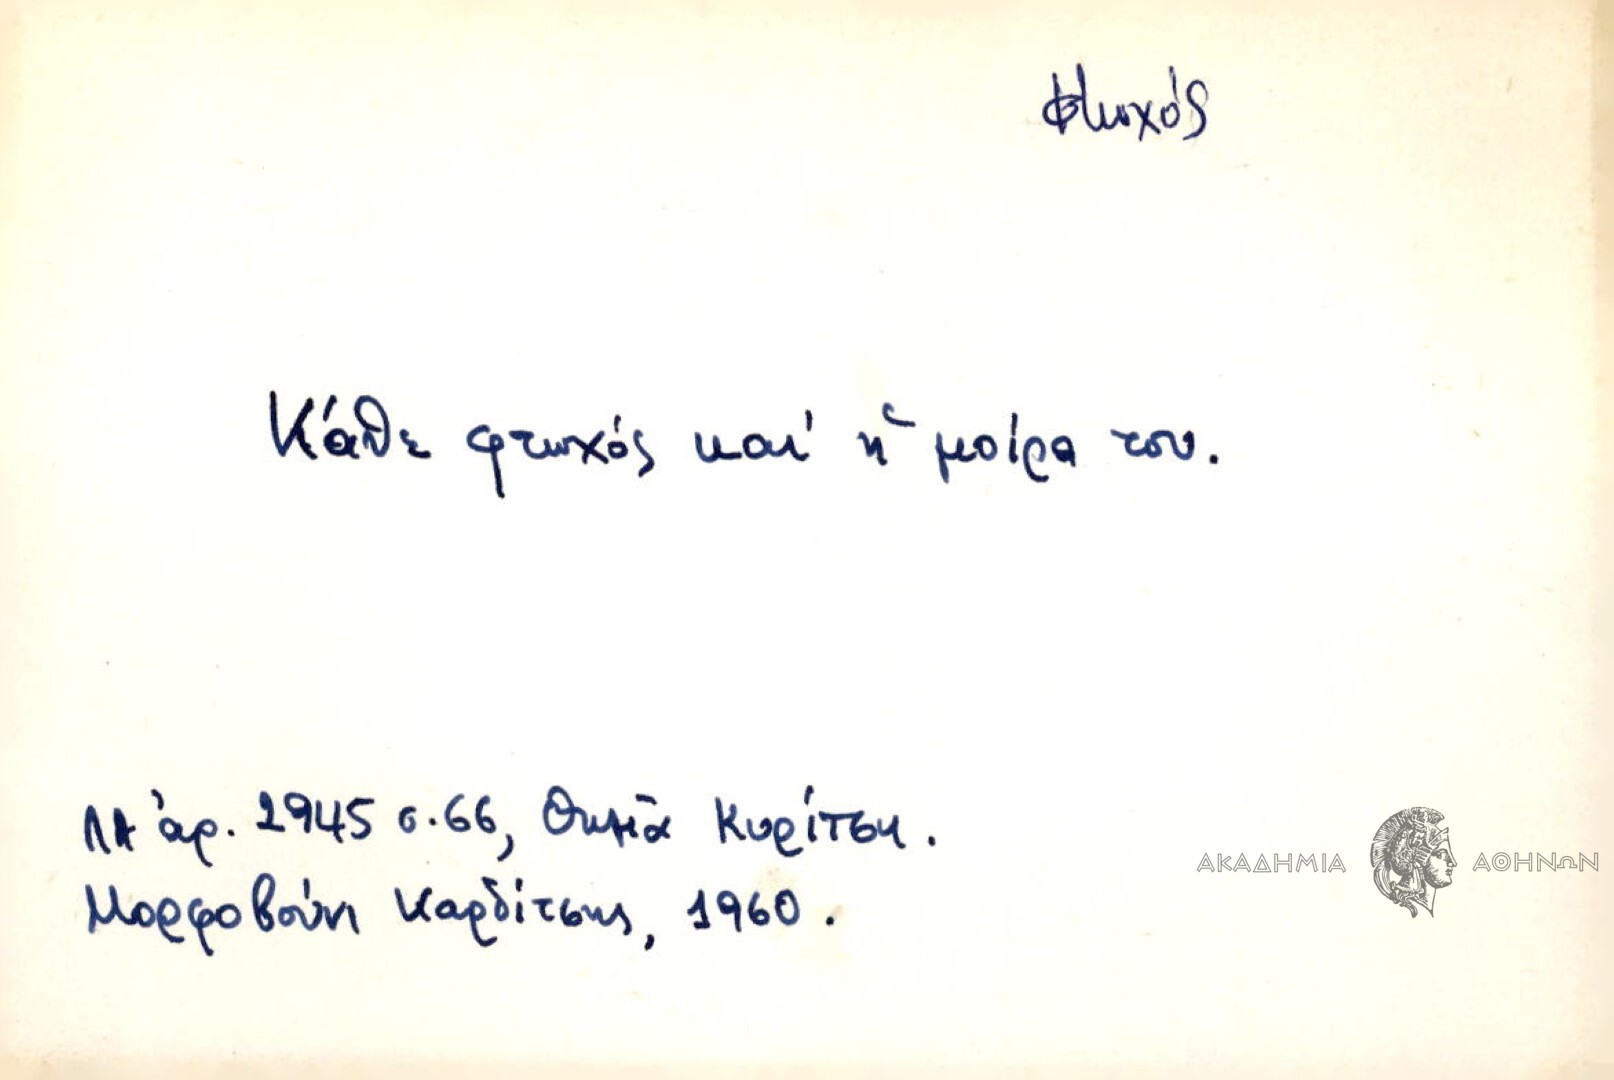 Φτωχός
Κάθε φτωχός καί ἡ μοίρα του.
ΛΑ ἀρ. 2945 σ. 66, Θωμᾶ Κυρίτση.
Μορφοβούνι Καρδίτσης, 1960.
ΑΚΑΔΗΜΙΑ ΑΘΗΝΩΝ